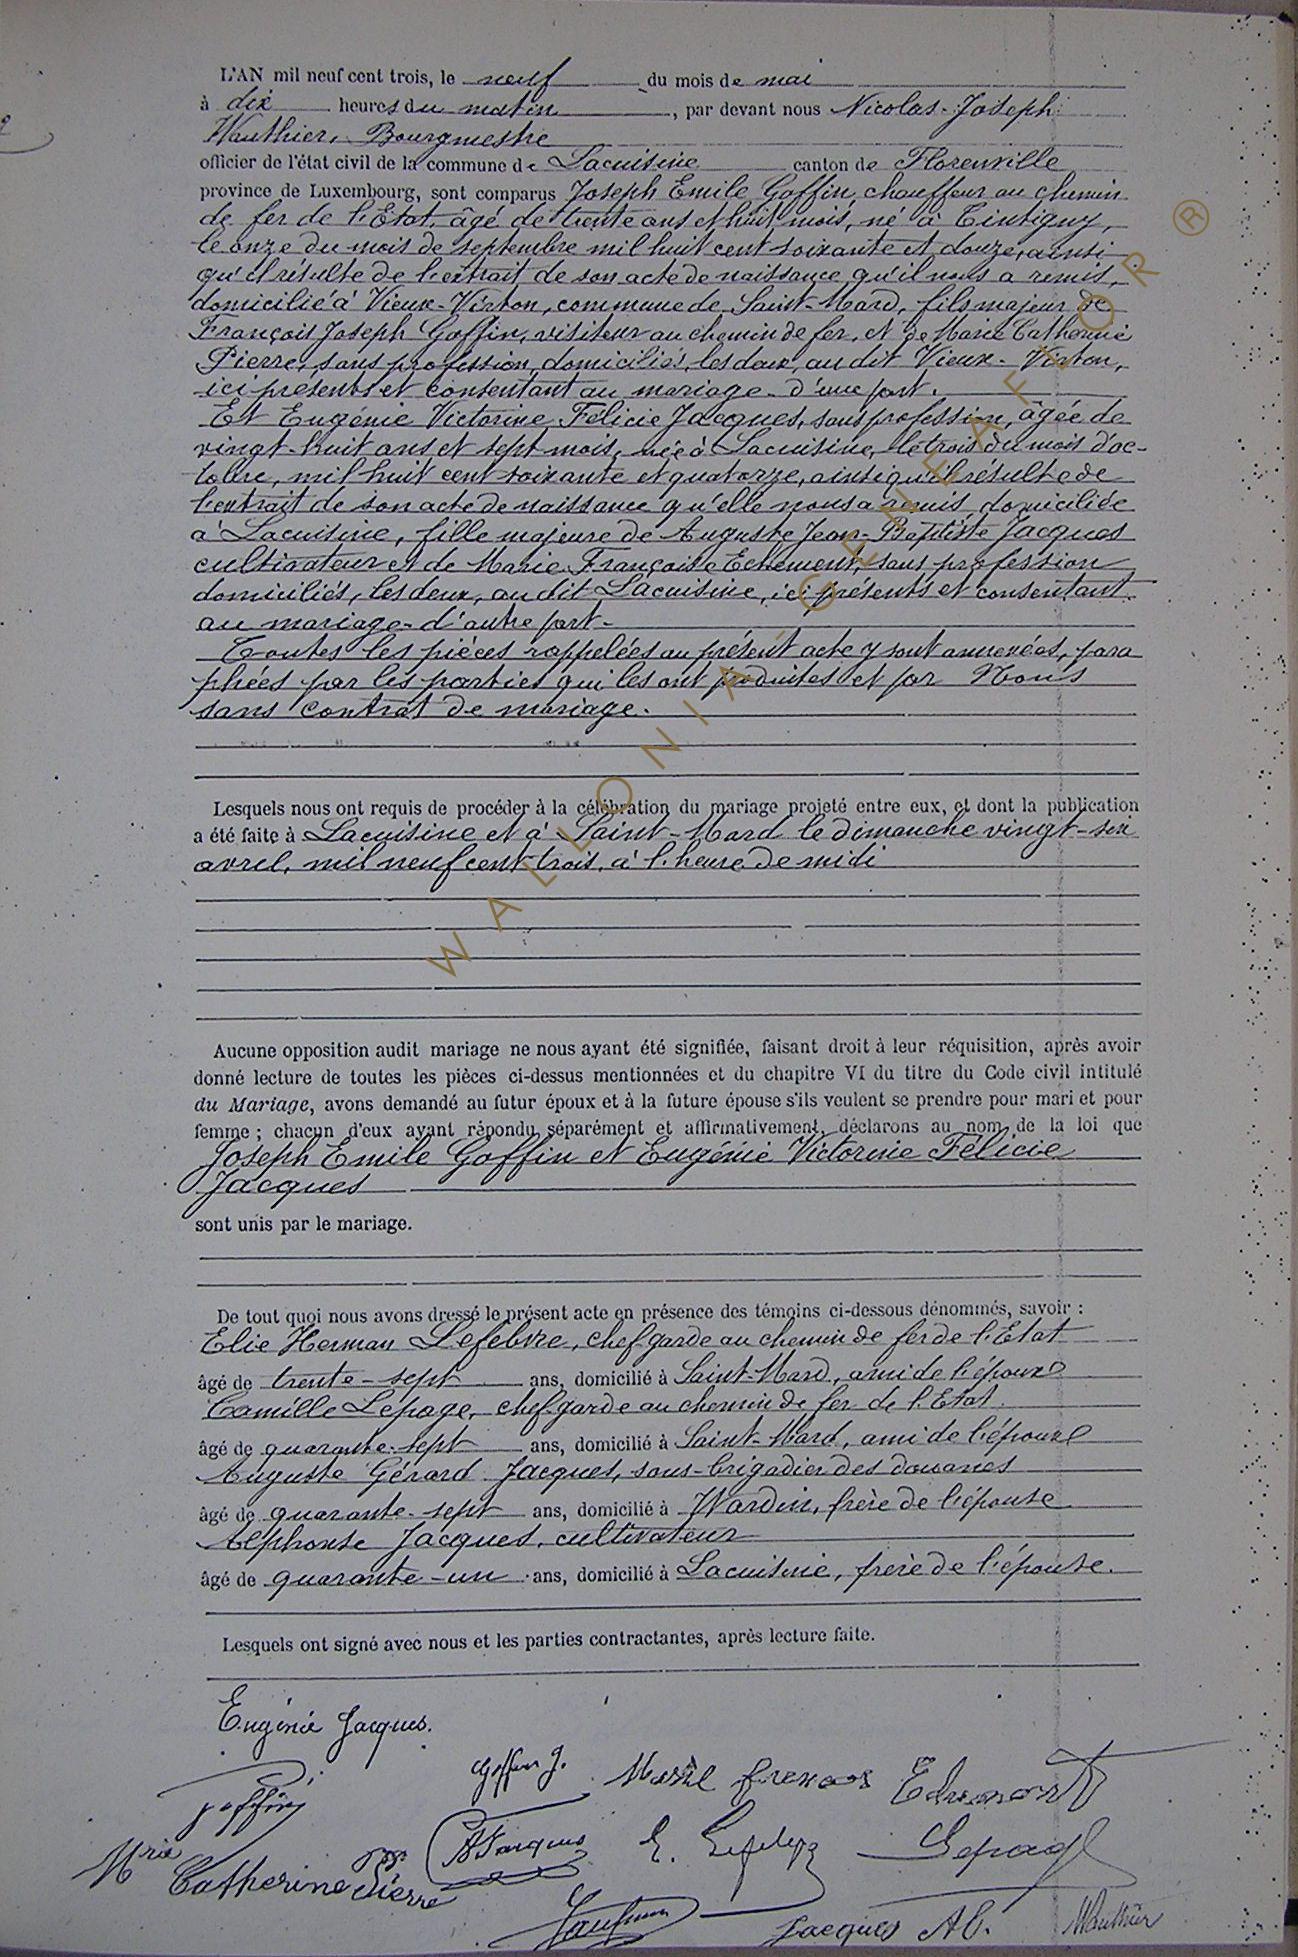 L'AN mil neuf cent trois, le neuf du mois de mai
à dix heures du matin, par devant nous Nicolas-Joseph
Wauthier, Bourgmestre
officier de l'état civil de la commune de Lacuisine canton de Florenville
province de Luxembourg, sont comparus Joseph Emile Goffin, chauffeur au chemin
de fer de l'Etat, âgé de trente ans et huit mois, né à Tintigny,
le onze du mois de septembre mil huit cent soixante et douze, ainsi
qu'il résulte de l'extrait de son acte de naissance qu'il nous a remis,
domicilié à Vieux-Virton, commune de Saint-Mard, fils majeur de
François Joseph Goffin, visiteur au chemin de fer, et de Marie Catherine
Pierre, sans profession, domiciliés, les deux, au dit Vieux-Virton,
ici présents et consentant au mariage d'une part.
Et Eugénie Victorine Félicie Jacques, sans profession, âgée de
vingt-huit ans et sept mois, née à Lacuisine, le trois du mois d'oc-
tobre, mil huit cent soixante et quatorze, ainsi qu'il résulte de
l'extrait de son acte de naissance qu'elle nous a remis, domiciliée
à Lacuisine, fille majeure de Auguste Jean-Baptiste Jacques
cultivateur et de Marie Françoise, sans profession
domiciliés, les deux, au dit Lacuisine, ici présents et consentant
au mariage d'autre part.
Toutes les pièces rappelées au présent acte y sont annexées, para
phées par les parties qui les ont produites et par Nous
sans contrat de mariage.
Lesquels nous ont requis de procéder à la célébration du mariage projeté entre eux, et dont la publication
a été faite à Lacuisine et à Saint-Mard le dimanche vingt-six
avril, mil neuf cent trois, à l'heure de midi
Aucune opposition audit mariage ne nous ayant été signifiée, faisant droit à leur réquisition, après avoir
donné lecture de toutes les pièces ci-dessus mentionnées et du chapitre VI du titre du Code civil intitulé
du Mariage, avons demandé au futur époux et à la future épouse s'ils veulent se prendre pour mari et pour
femme ; chacun d'eux ayant répondu séparément et affirmativement, déclarons au nom de la loi que
Joseph Emile Goffin et Eugénie Victorine Félicie
Jacques
sont unis par le mariage.
De tout quoi nous avons dressé le présent acte en présence des témoins ci-dessous dénommés, savoir :
Elie Herman Lefebvre, chef-garde au chemin de fer de l'Etat
âgé de trente-sept ans, domicilié à Saint-Mard, ami de l'époux
Camille Lepage, chef-garde au chemin de fer de l'Etat
âgé de quarante-sept ans, domicilié à Saint-Mard, ami de l'époux
Auguste Gérard Jacques, sous-brigadier des douanes
âgé de quarante-sept ans, domicilié à Wardin, frère de l'épouse
Alphonse Jacques, cultivateur
âgé de quarante-un ans, domicilié à Lacuisine, frère de l'épouse.
Lesquels ont signé avec nous et les parties contractantes, après lecture faite.
Eugénie Jacques.
Goffin J.
Goffin
AJacques
E. Lefebvre
Lepage
Mrie Catherine Pierre
Jacques Al.
NWauthier
WALLONIA GENEAFTOR ®